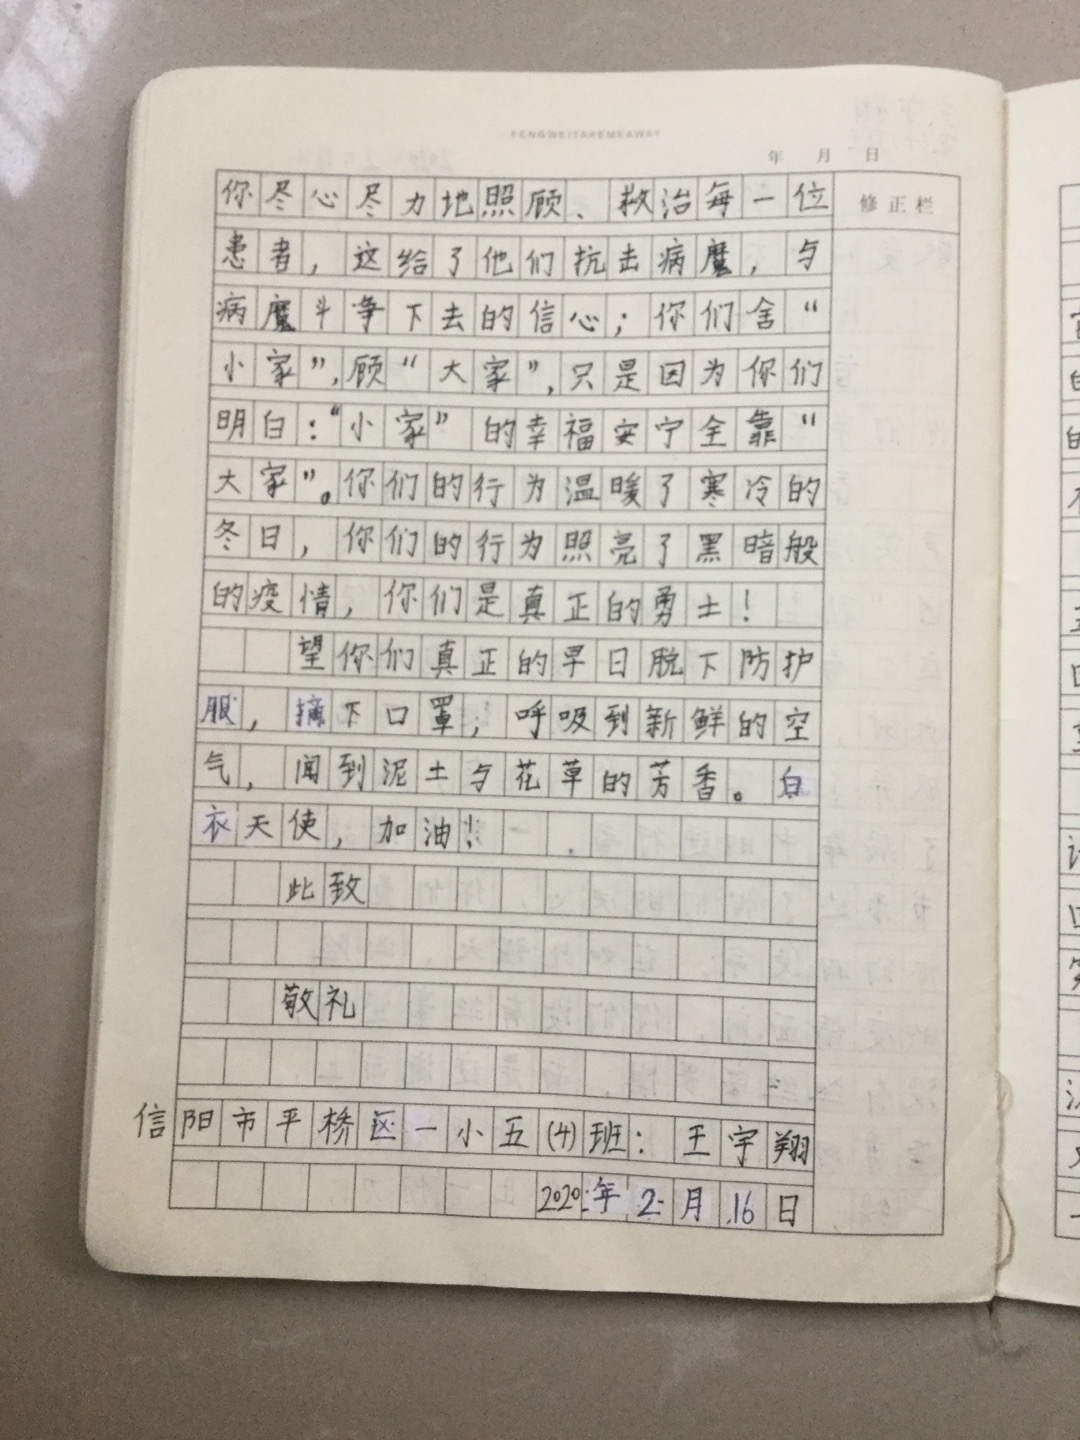 FENGWEITAKEMEAWAY
年 月 日
修正栏
你尽心尽力地照顾、救治每一位
患者，这给了他们抗击病魔，与
病魔斗争下去的信心；你们舍“
小家”，顾“大家”，只是因为你们
明白：“小家”的幸福安宁全靠“
大家”。你们的行为温暖了寒冷的
冬日，你们的行为照亮了黑暗般
的疫情，你们是真正的勇士！
望你们真正的早日脱下防护
服，摘下口罩；呼吸到新鲜的空
气，闻到泥土与花草的芳香。白
衣天使，加油！
此致
敬礼
信阳市平桥区一小五(4)班：王宇翔
2020年2月16日